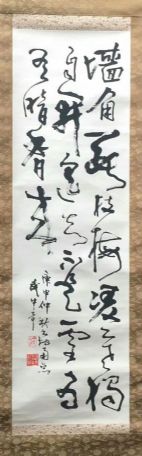 墙角數枝梅凌寒獨
自開遥知不是雪為
有暗香来
庚申仲秋
武中奇